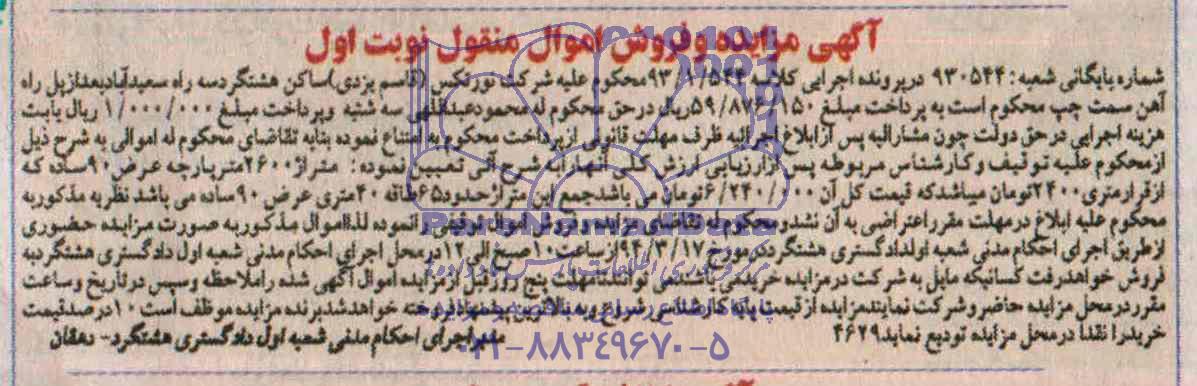 آگهی مزایده و فروش اموال منقول نوبت اول
شماره بایگانی شعبه: ۹۳۰۵۴۴ در پرونده اجرایی کلاسه ۹۳/۱/۵۴۴ محکوم علیه شرکت نورتکس (قاسم یزدی) ساکن هشتگرد سه راه سعیدآباد بعد از پل راه
آهن سمت چپ محکوم است به پرداخت مبلغ ۵۹/۸۷۶/۱۵۰ ریال در حق محکوم له محمود عبداللهی سه شنبه و پرداخت مبلغ ۱/۰۰۰/۰۰۰ ریال بابت
هزینه اجرایی در حق دولت چون مشارالیه پس از ابلاغ اجرائیه ظرف مهلت قانونی از پرداخت محکوم به امتناع نموده بنابه تقاضای محکوم له اموالی به شرح ذیل
از محکوم علیه توقیف و کارشناس مربوطه پس از ارزیابی ارزش کلی آنها را به شرح آتی تعیین نموده: متراژ ۲۶۰۰ متر پارچه عرض ۹۰ ساده که
از قرار متری ۲۴۰۰ تومان میباشد که قیمت کل آن ۶/۲۴۰/۰۰۰ تومان می باشد جمع این متراژ حدود ۶۵ طاقه ۴۰ متری عرض ۹۰ ساده می باشد نظریه مذکور به
محکوم علیه ابلاغ در مهلت مقرر اعتراضی به آن نشده محکوم له تقاضای مزایده و فروش اموال توقیفی را نموده لذا اموال مذکور به صورت مزایده حضوری
از طریق اجرای احکام مدنی شعبه اول دادگستری هشتگرد در مورخ ۹۴/۳/۱۷ از ساعت ۱۰ صبح الی ۱۲ در محل اجرای احکام مدنی شعبه اول دادگستری هشتگرد به
فروش خواهد رفت کسانیکه مایل به شرکت در مزایده خرید می باشند می توانند مهلت پنج روز قبل از مزایده اموال آگهی شده را ملاحظه و سپس در تاریخ و ساعت
مقرر در محل مزایده حاضر و شرکت نمایند مزایده از قیمت پایه کارشناسی شروع و به بالاترین پیشنهاد فروخته خواهد شد برنده مزایده موظف است ۱۰ درصد قیمت
خرید را نقدا در محل مزایده تودیع نماید ۴۶۲۹ مدیر اجرای احکام مدنی شعبه اول دادگستری هشتگرد - دهقان
۰۲۱-۸۸۳۴۹۶۷۰-۵